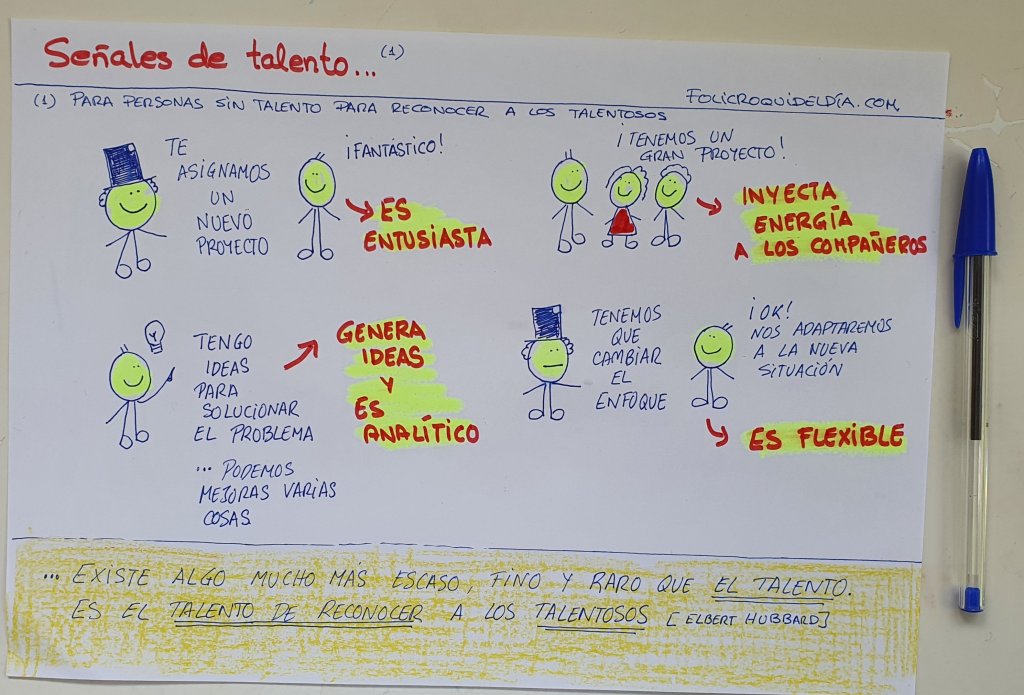 Señales de talento... (1)
FOLICROQUIDELDÍA.COM
(1) PARA PERSONAS SIN TALENTO PARA RECONOCER A LOS TALENTOSOS
TE
ASIGNAMOS
UN
NUEVO
PROYECTO
¡FANTÁSTICO!
ES
ENTUSIASTA
¡TENEMOS UN
GRAN PROYECTO!
INYECTA
ENERGÍA
A LOS COMPAÑEROS
TENGO
IDEAS
PARA
SOLUCIONAR
EL PROBLEMA
... PODEMOS
MEJORAS VARIAS
COSAS
GENERA
IDEAS
Y
ES
ANALÍTICO
TENEMOS
QUE
CAMBIAR
EL
ENFOQUE
¡OK!
NOS ADAPTAREMOS
A LA NUEVA
SITUACIÓN
ES FLEXIBLE
... EXISTE ALGO MUCHO MÁS ESCASO, FINO Y RARO QUE EL TALENTO.
ES EL TALENTO DE RECONOCER A LOS TALENTOSOS [ELBERT HUBBARD]